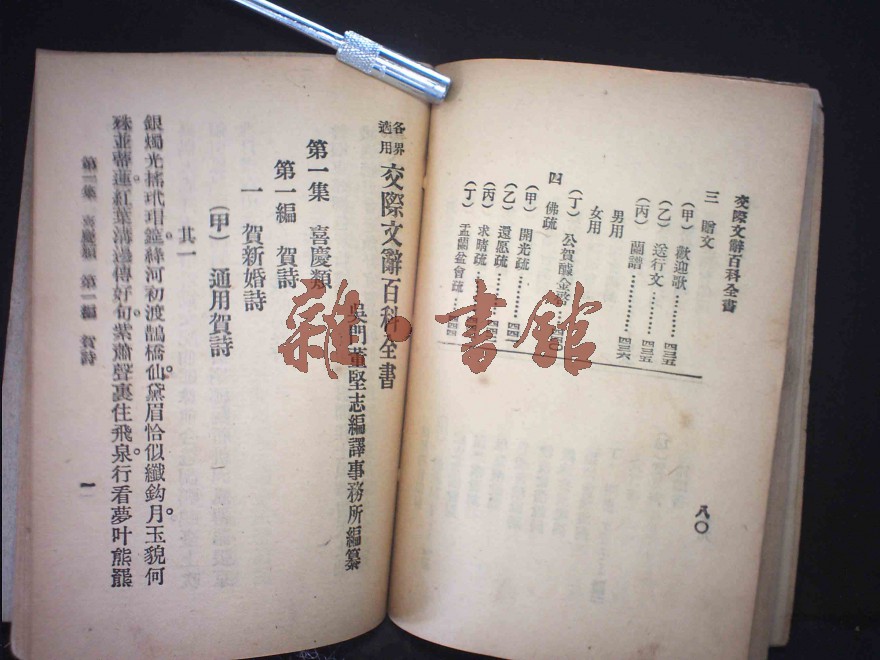 交際文辭百科全書
三 贈文
(甲) 歡迎歌………四三五
(乙) 送行文………四三五
(丙) 蘭譜…………四三六
男用
女用
(丁) 公賀醵金啓……四四〇
四 佛疏
(甲) 開光疏………四四一
(乙) 還愿疏………四四二
(丙) 求晴疏
(丁) 盂蘭盆會疏……四四四
八〇
各界適用 交際文辭百科全書
吳門董堅志編譯事務所編纂
第一集 喜慶類
第一編 賀詩
一 賀新婚詩
(甲) 通用賀詩
其一
銀燭光搖玳瑁筵。絳河初渡鵲橋仙。黛眉恰似纖鈎月。玉貌何
殊並蒂蓮。紅葉溝邊傳好句。紫簫聲裏住飛泉。行看夢叶熊羆
第一集 喜慶類 第一編 賀詩
一
雜·書館